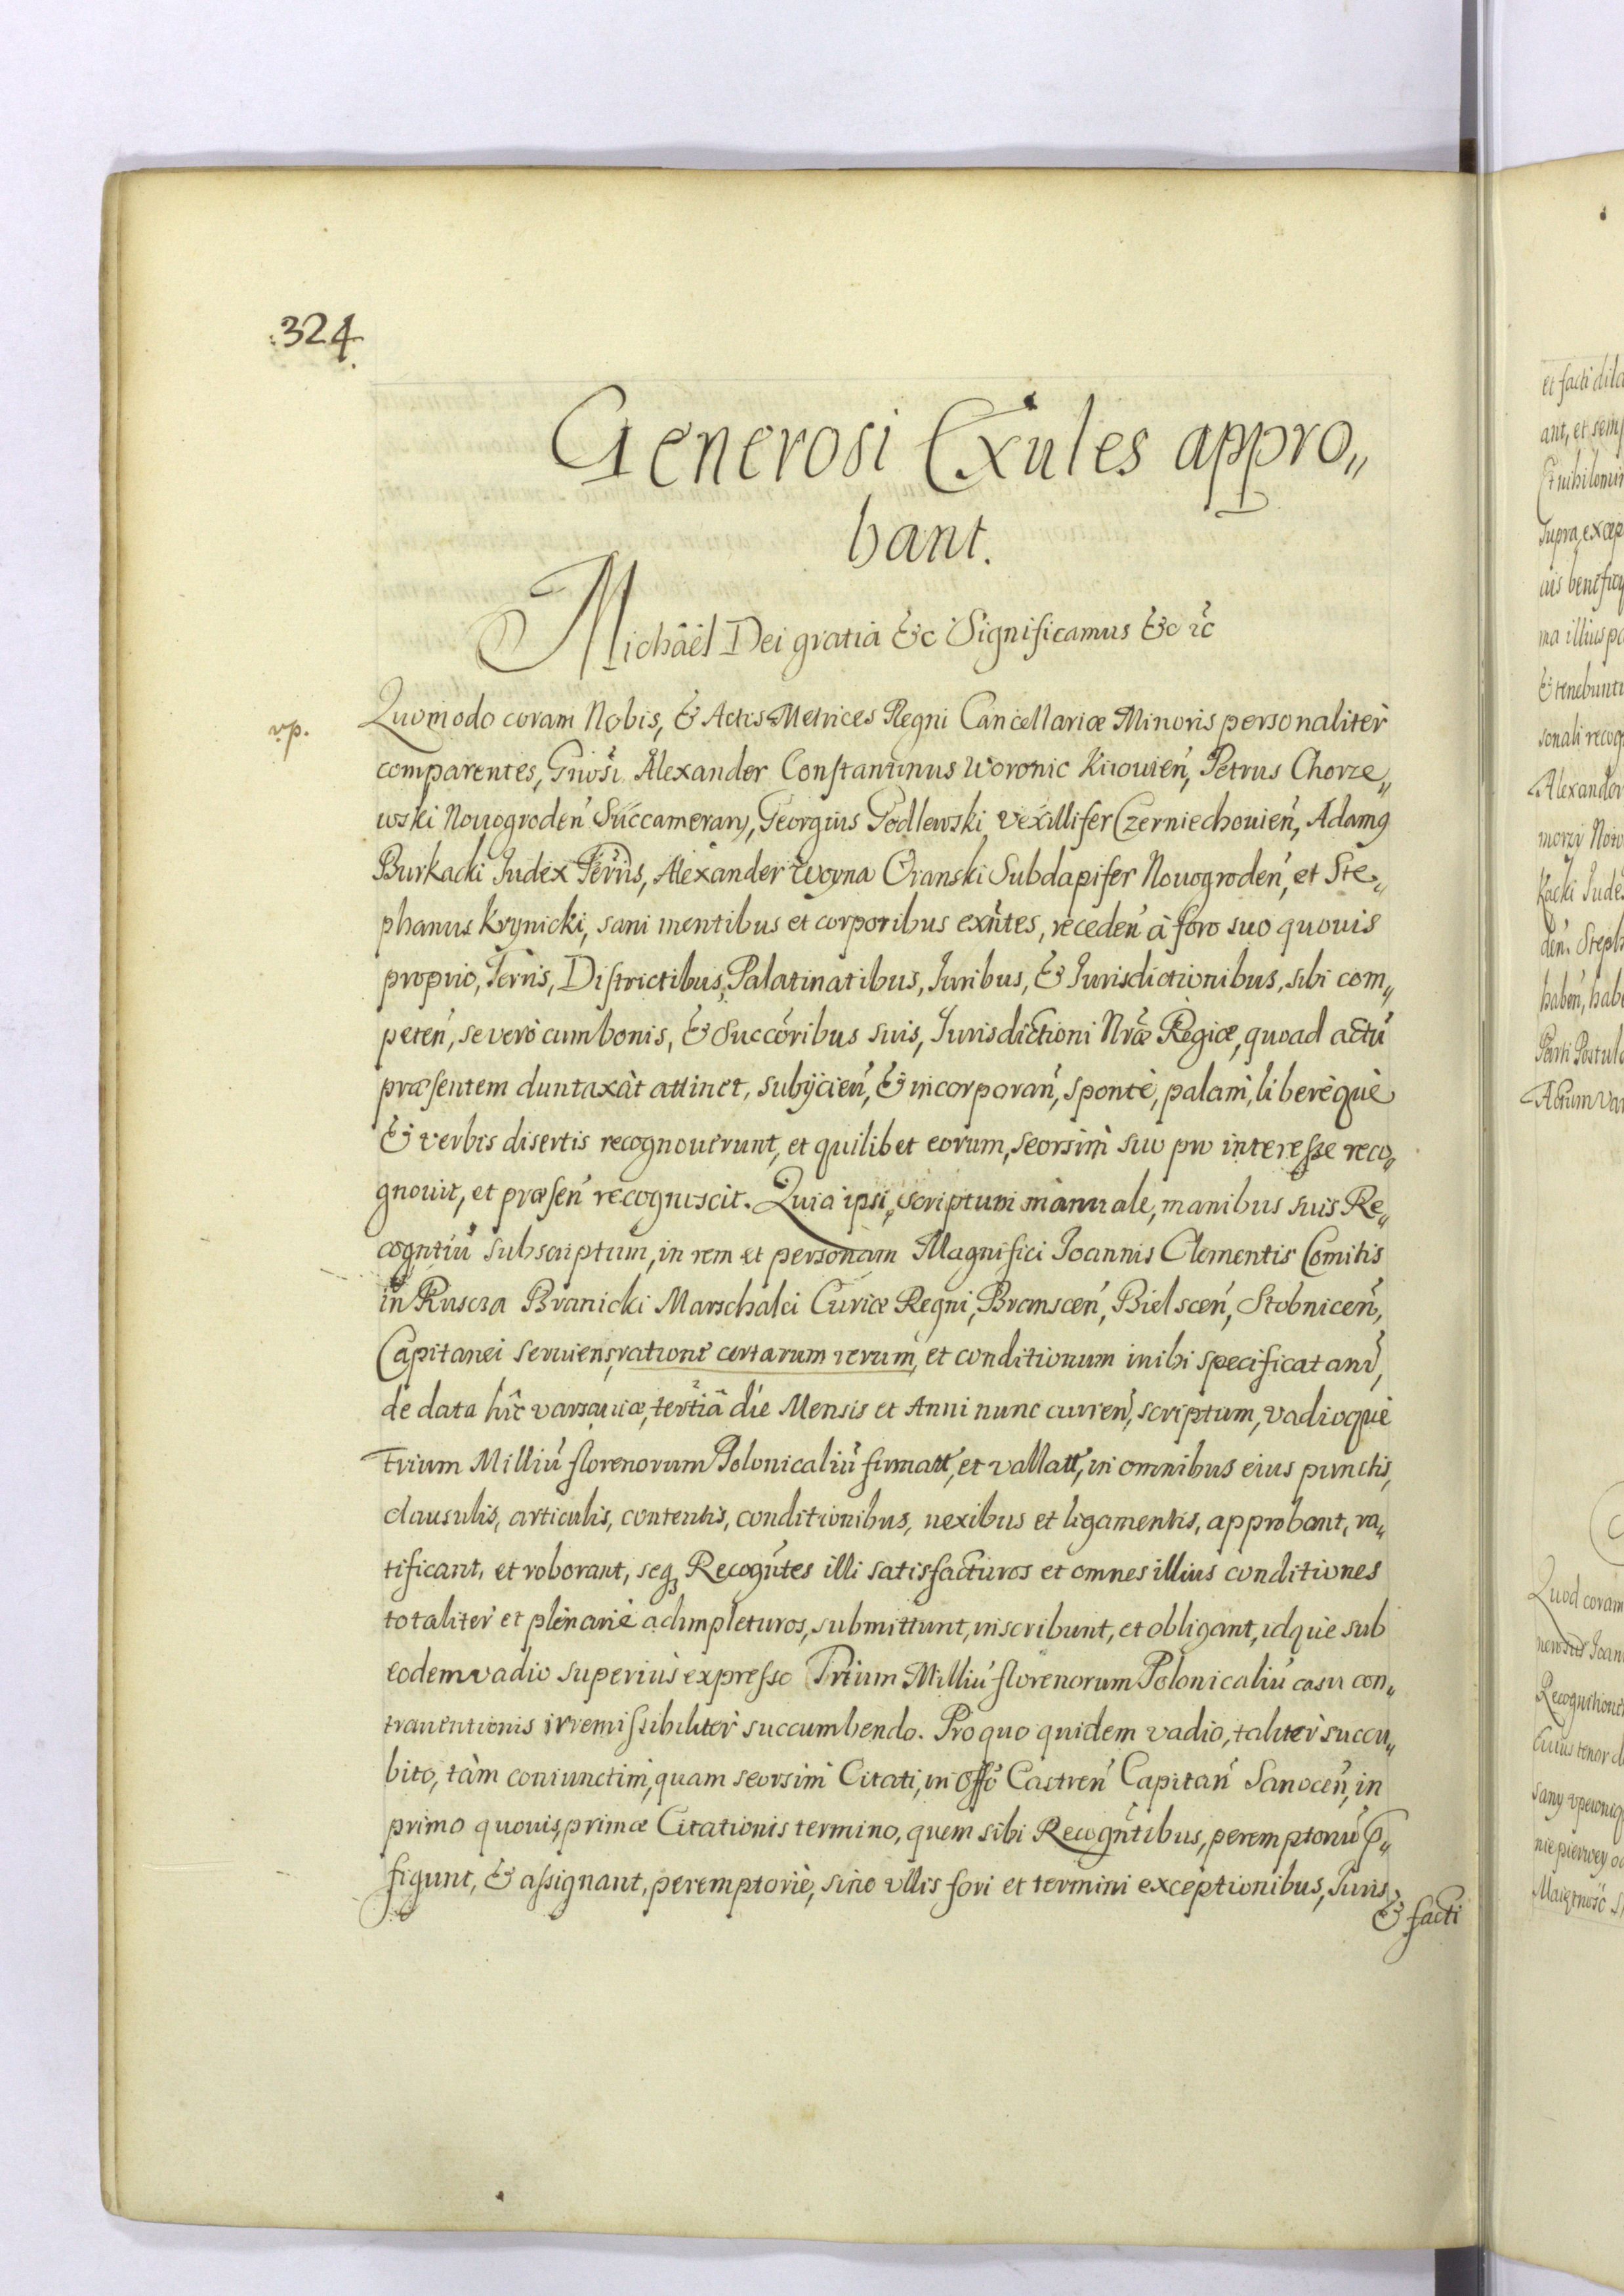 324
Generosi Exules appro„
bant.
Michäel Dei gratiâ &c Significamus &c &c
v.p.
Quomodo coram Nobis, & Actis Metrices Regni Cancellariæ Minoris personalitèr
comparentes, Gnosi Alexander Constantinus Woronic Kiiouień, Petrus Chorze„
wski Nouogrodeń Succamerarij, Georgius Godlewski Vexillifer Czerniechouień, Adamg
Burkacki Iudex Terris, Alexander Woyna Oranski Subdapifer Nouogrodeń, et Ste„
phanus Krynicki, sani mentibus et corporibus exñtes, recedeń à foro suo quouis
proprio, Terris, Districtibus, Palatinatibus, Iuribus, & Iurisdictionibus, sibi com„
peteń, se verò cum bonis, & Succoribus suis, Iurisdictioni Nræ Regiæ, quoad actũ
præsentem duntaxàt attinet, subijcień, & incorporań, spontè, palam, liberèquè
& verbis disertis recognouerunt, et quilibet eorum, seorsim suo pro interesse reco„
gnouit, et præseń recognoscit. Quia ipsi, scriptum manuale, manibus suis Re„
cogntiũ subscriptum, in rem et personam Magnifici Ioannis Clementis Comitis
in Ruscza Branicki Marschalci Curiæ Regni, Bransceń, Bielsceń, Stobniceń,
Capitanei seruiens, ratione certarum rerum, et conditionum inibi specificatarũ,
de data hîc varsauiæ, tertiâ die Mensis et Anni nunc curreń, scriptum, vadioquè
trium Milliũ florenorum Polonicaliũ firmatt, et vallatt, in omnibus eius punctis,
clausulis, articulis, contentis, conditionibus, nexibus et ligamentis, approbant, ra„
tificant, et roborant, seq Recogñtes illi satisfacturos et omnes illius conditiones
totalitèr et plenariè adimpleturos, submittunt, inscribunt, et obligant, idquè sub
eodem vadio superiùs expresso Trium Milliũ florenorum Polonicaliũ casu con„
trauentionis irremissibilitèr succumbendo. Pro quo quidem vadio, talitèr succu„
bito, tàm coniunctim, quam seorsim Citati, in Offo Castreń Capitań Sanoceń, in
primo quouis, primæ Citationis termino, quem sibi Recogñtibus, peremptoriũ p„
figunt, & assignant, peremptoriè, sine vllis fori et termini exceptionibus, Iuris
& facti